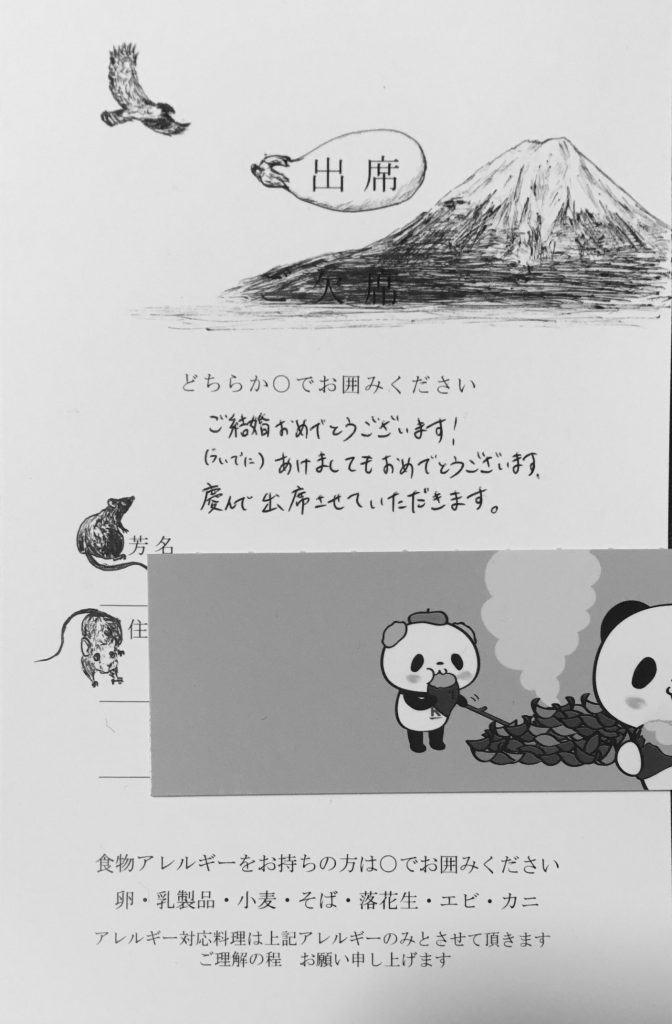 出席
欠席
どちらか〇でお囲みください
ご結婚おめでとうございます!
(ついでに)あけましてもおめでとうございます。
慶んで出席させていただきます。
芳名
住
食物アレルギーをお持ちの方は〇でお囲みください
卵・乳製品・小麦・そば・落花生・エビ・カニ
アレルギー対応料理は上記アレルギーのみとさせて頂きます
ご理解の程 お願い申し上げます